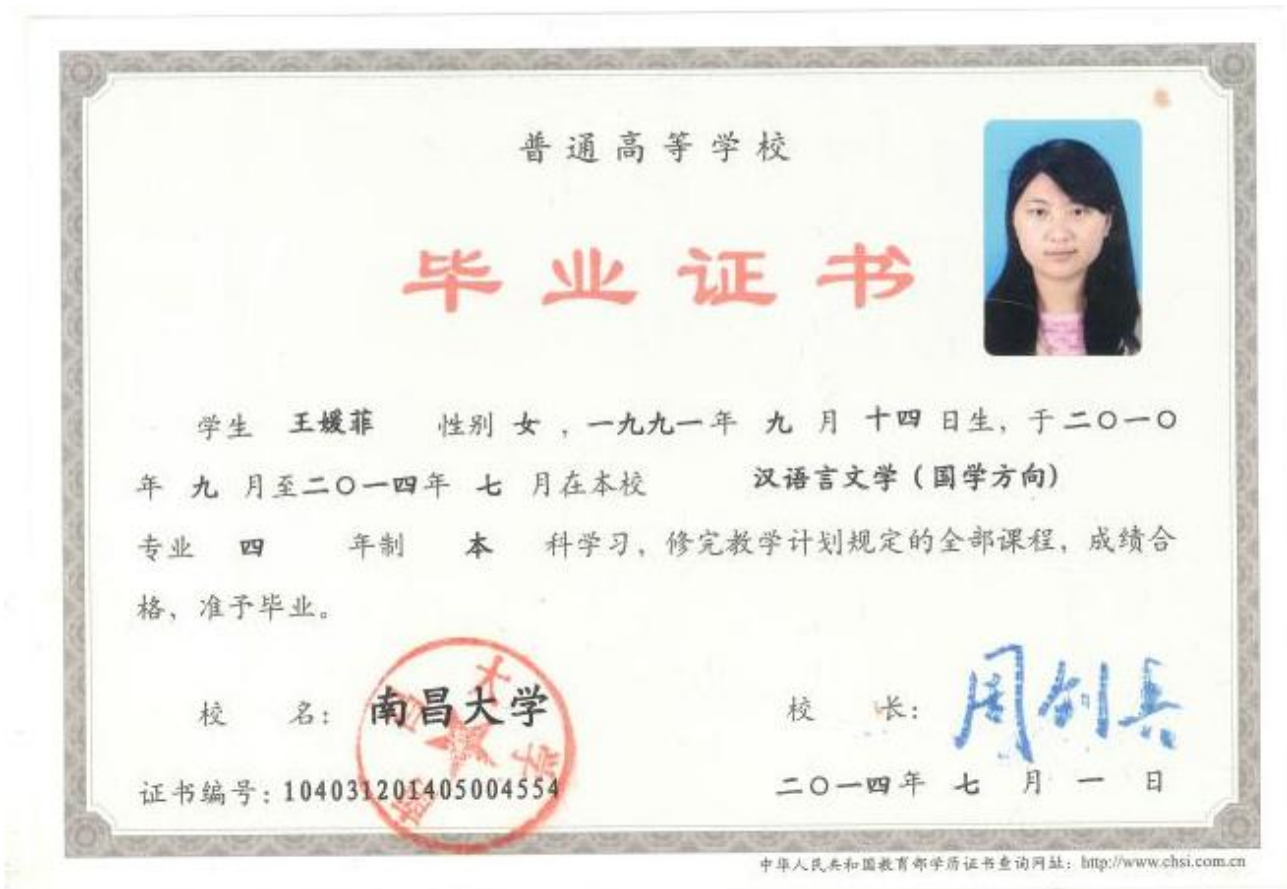 普通高等学校
毕业证书
学生 王媛菲 性别 女 ，一九九一年 九 月 十四 日生，于二〇一〇
年 九 月至二〇一四年 七 月在本校 汉语言文学（国学方向）
专业 四 年制 本 科学习，修完教学计划规定的全部课程，成绩合
格，准予毕业。
校 名：南昌大学
南昌大学
校 长：周创兵
证书编号：104031201405004554
二〇一四年 七 月 一 日
中华人民共和国教育部学历证书查询网址：http://www.chsi.com.cn